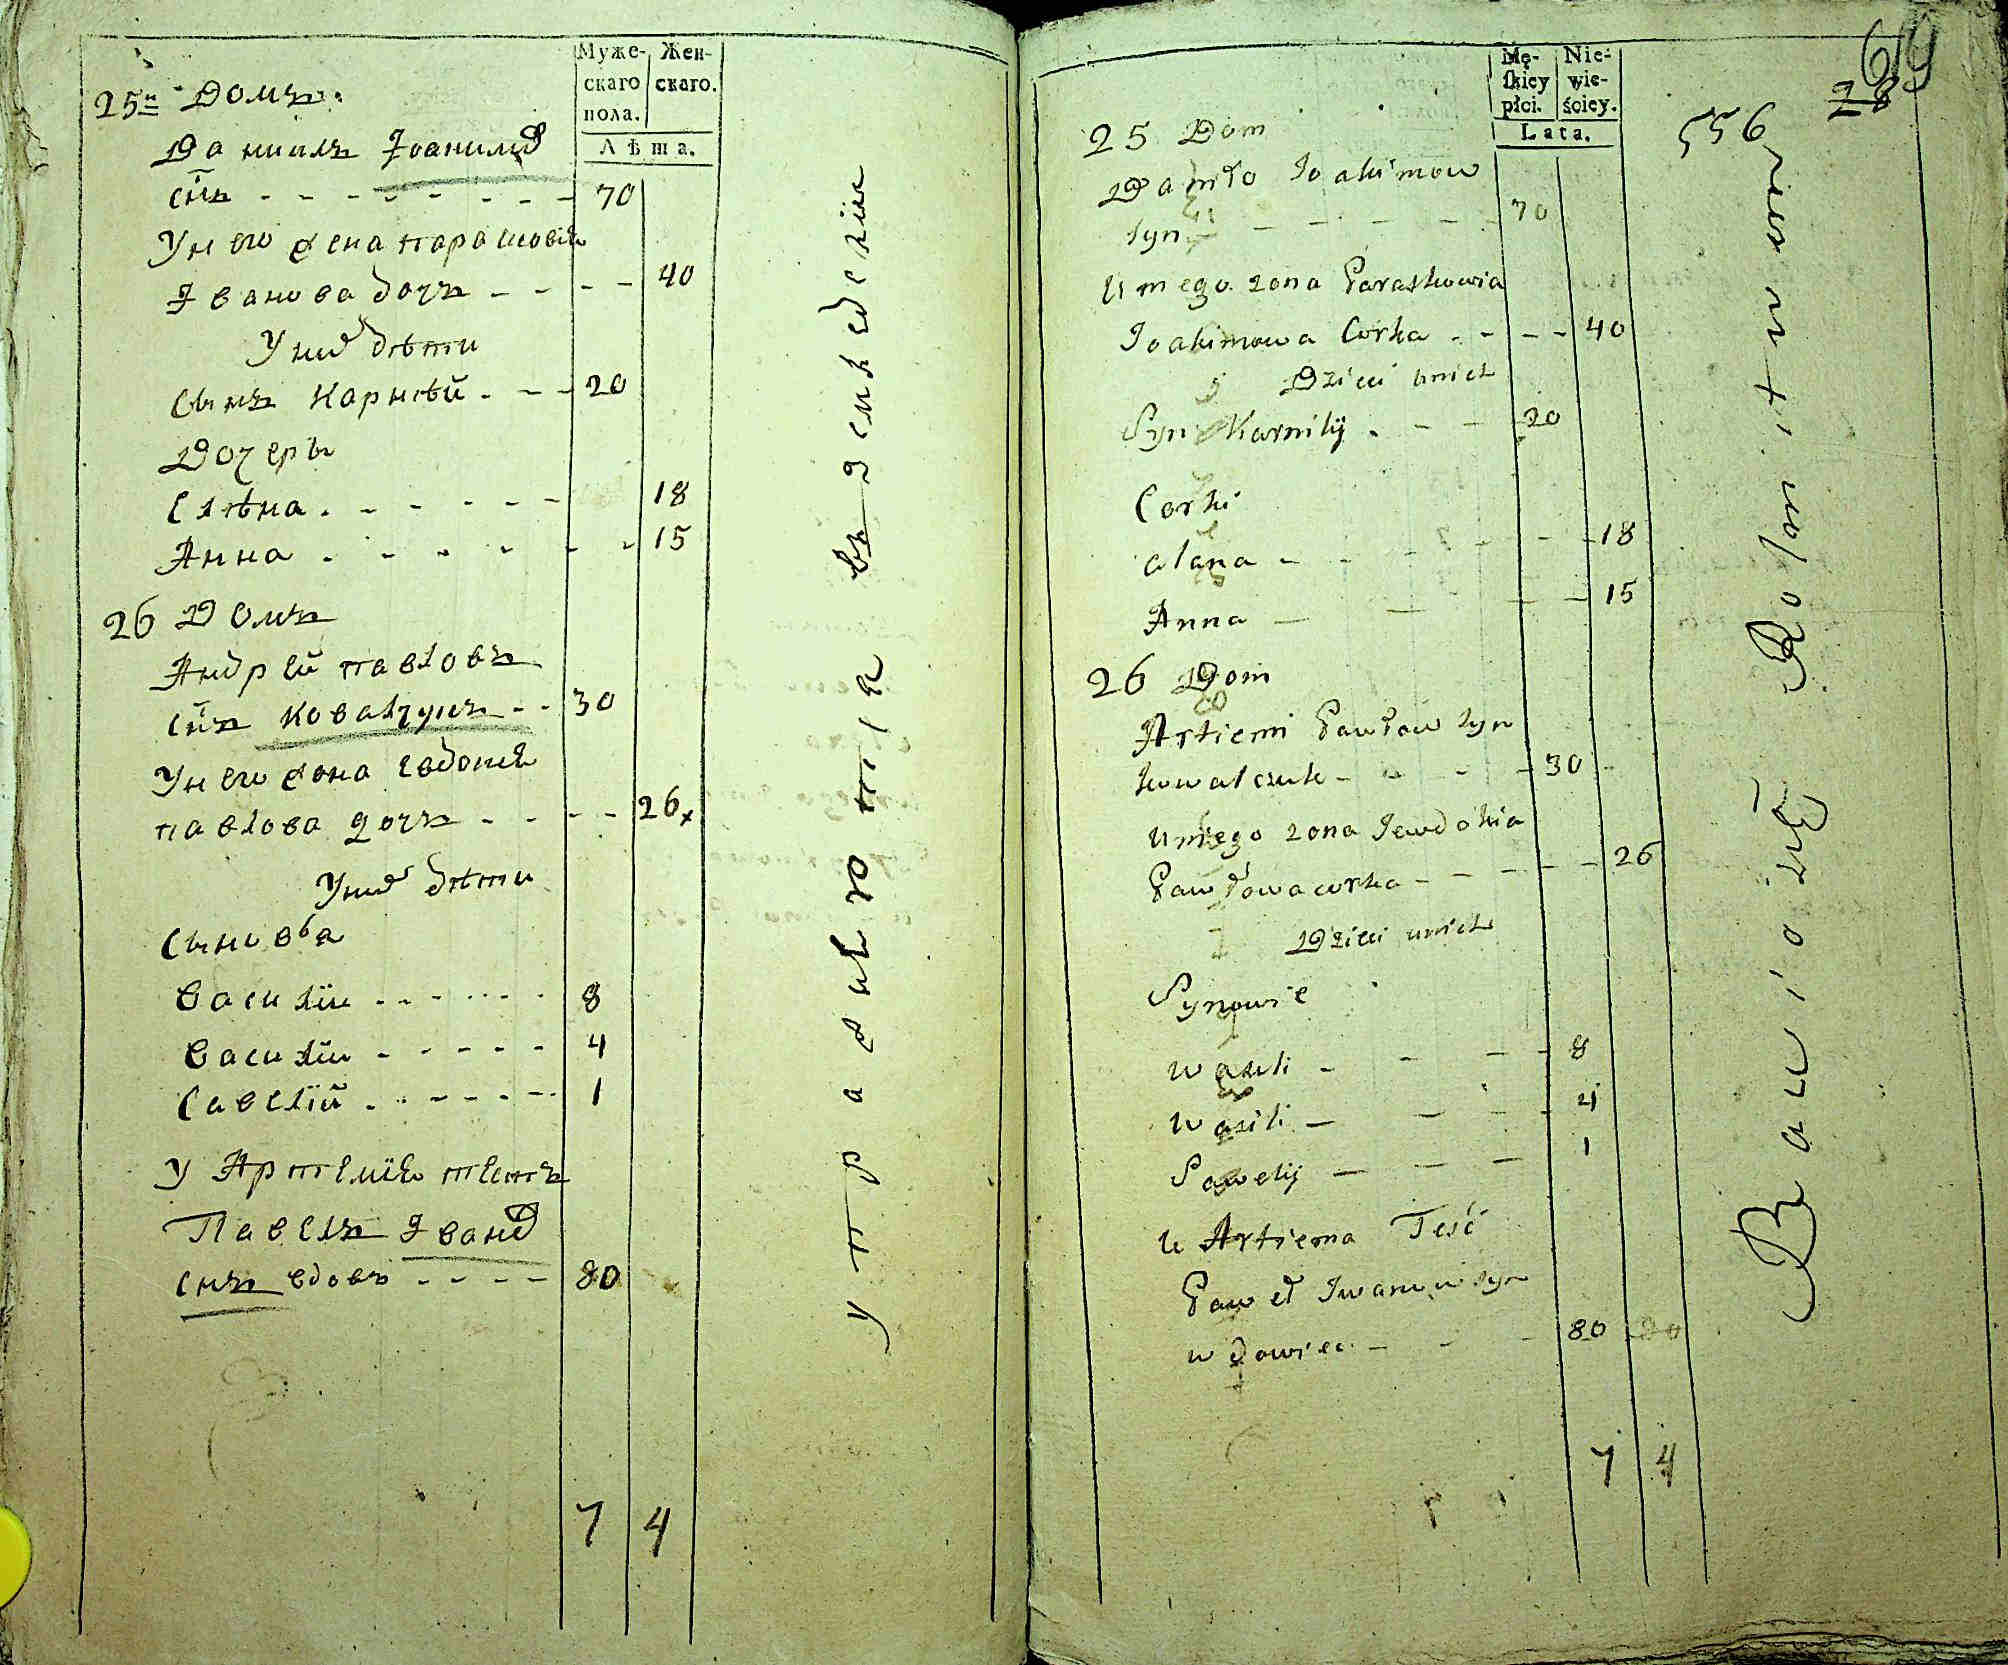 Муже-
скаго
пола.
Жен-
скаго.
Лѣта.
25й Домъ.
Даниилъ Іоакимов
сн҃ъ - - - - - - - - 70
У него жена Парасковїя
Іванова дочъ - - - - 40
У них дѣти
Сынъ Карнѣй - - - 20
Дочеры
Елѣна - - - - - - 18
Анна - - - - - - 15
26 Домъ
Андрей Павловъ
сн҃ъ Ковалчукъ - - 30
У него жена Евдокія
Павлова дочъ - - - - 26
У них дѣти
Сыновья
Василїи - - - - - - 8
Василїи - - - - - 4
Савелїй - - - - - - 1
У Артемїя тесть
Павелъ Іванов
снъ вдовъ - - - - 80
7 4
Mę-
ſkiey
płci.
Nie-
wie-
ściey.
Lata.
619
28
556
25 Dom
Daniło Joakimow
syn - - - - - - 70
U niego żona Paraskowia
Joakimowa Corka - - - - 40
Dzieci u nich
Syn Karnily - - - 20
Corki
Alana - - - - - - 18
Anna - - - - 15
26 Dom
Artiemi Pawłow syn
Kowalczuk - - - - - 30
U niego żona Jewdokia
Pawłowa corka - - - - - 26
Dzieci u nich
Synowie
Wasili - - - - 8
Wasili - - - - 4
Sawely - - - 1
U Artiema Teść
Paweł Iwanow syn
wdowiec - - - 80
7 4